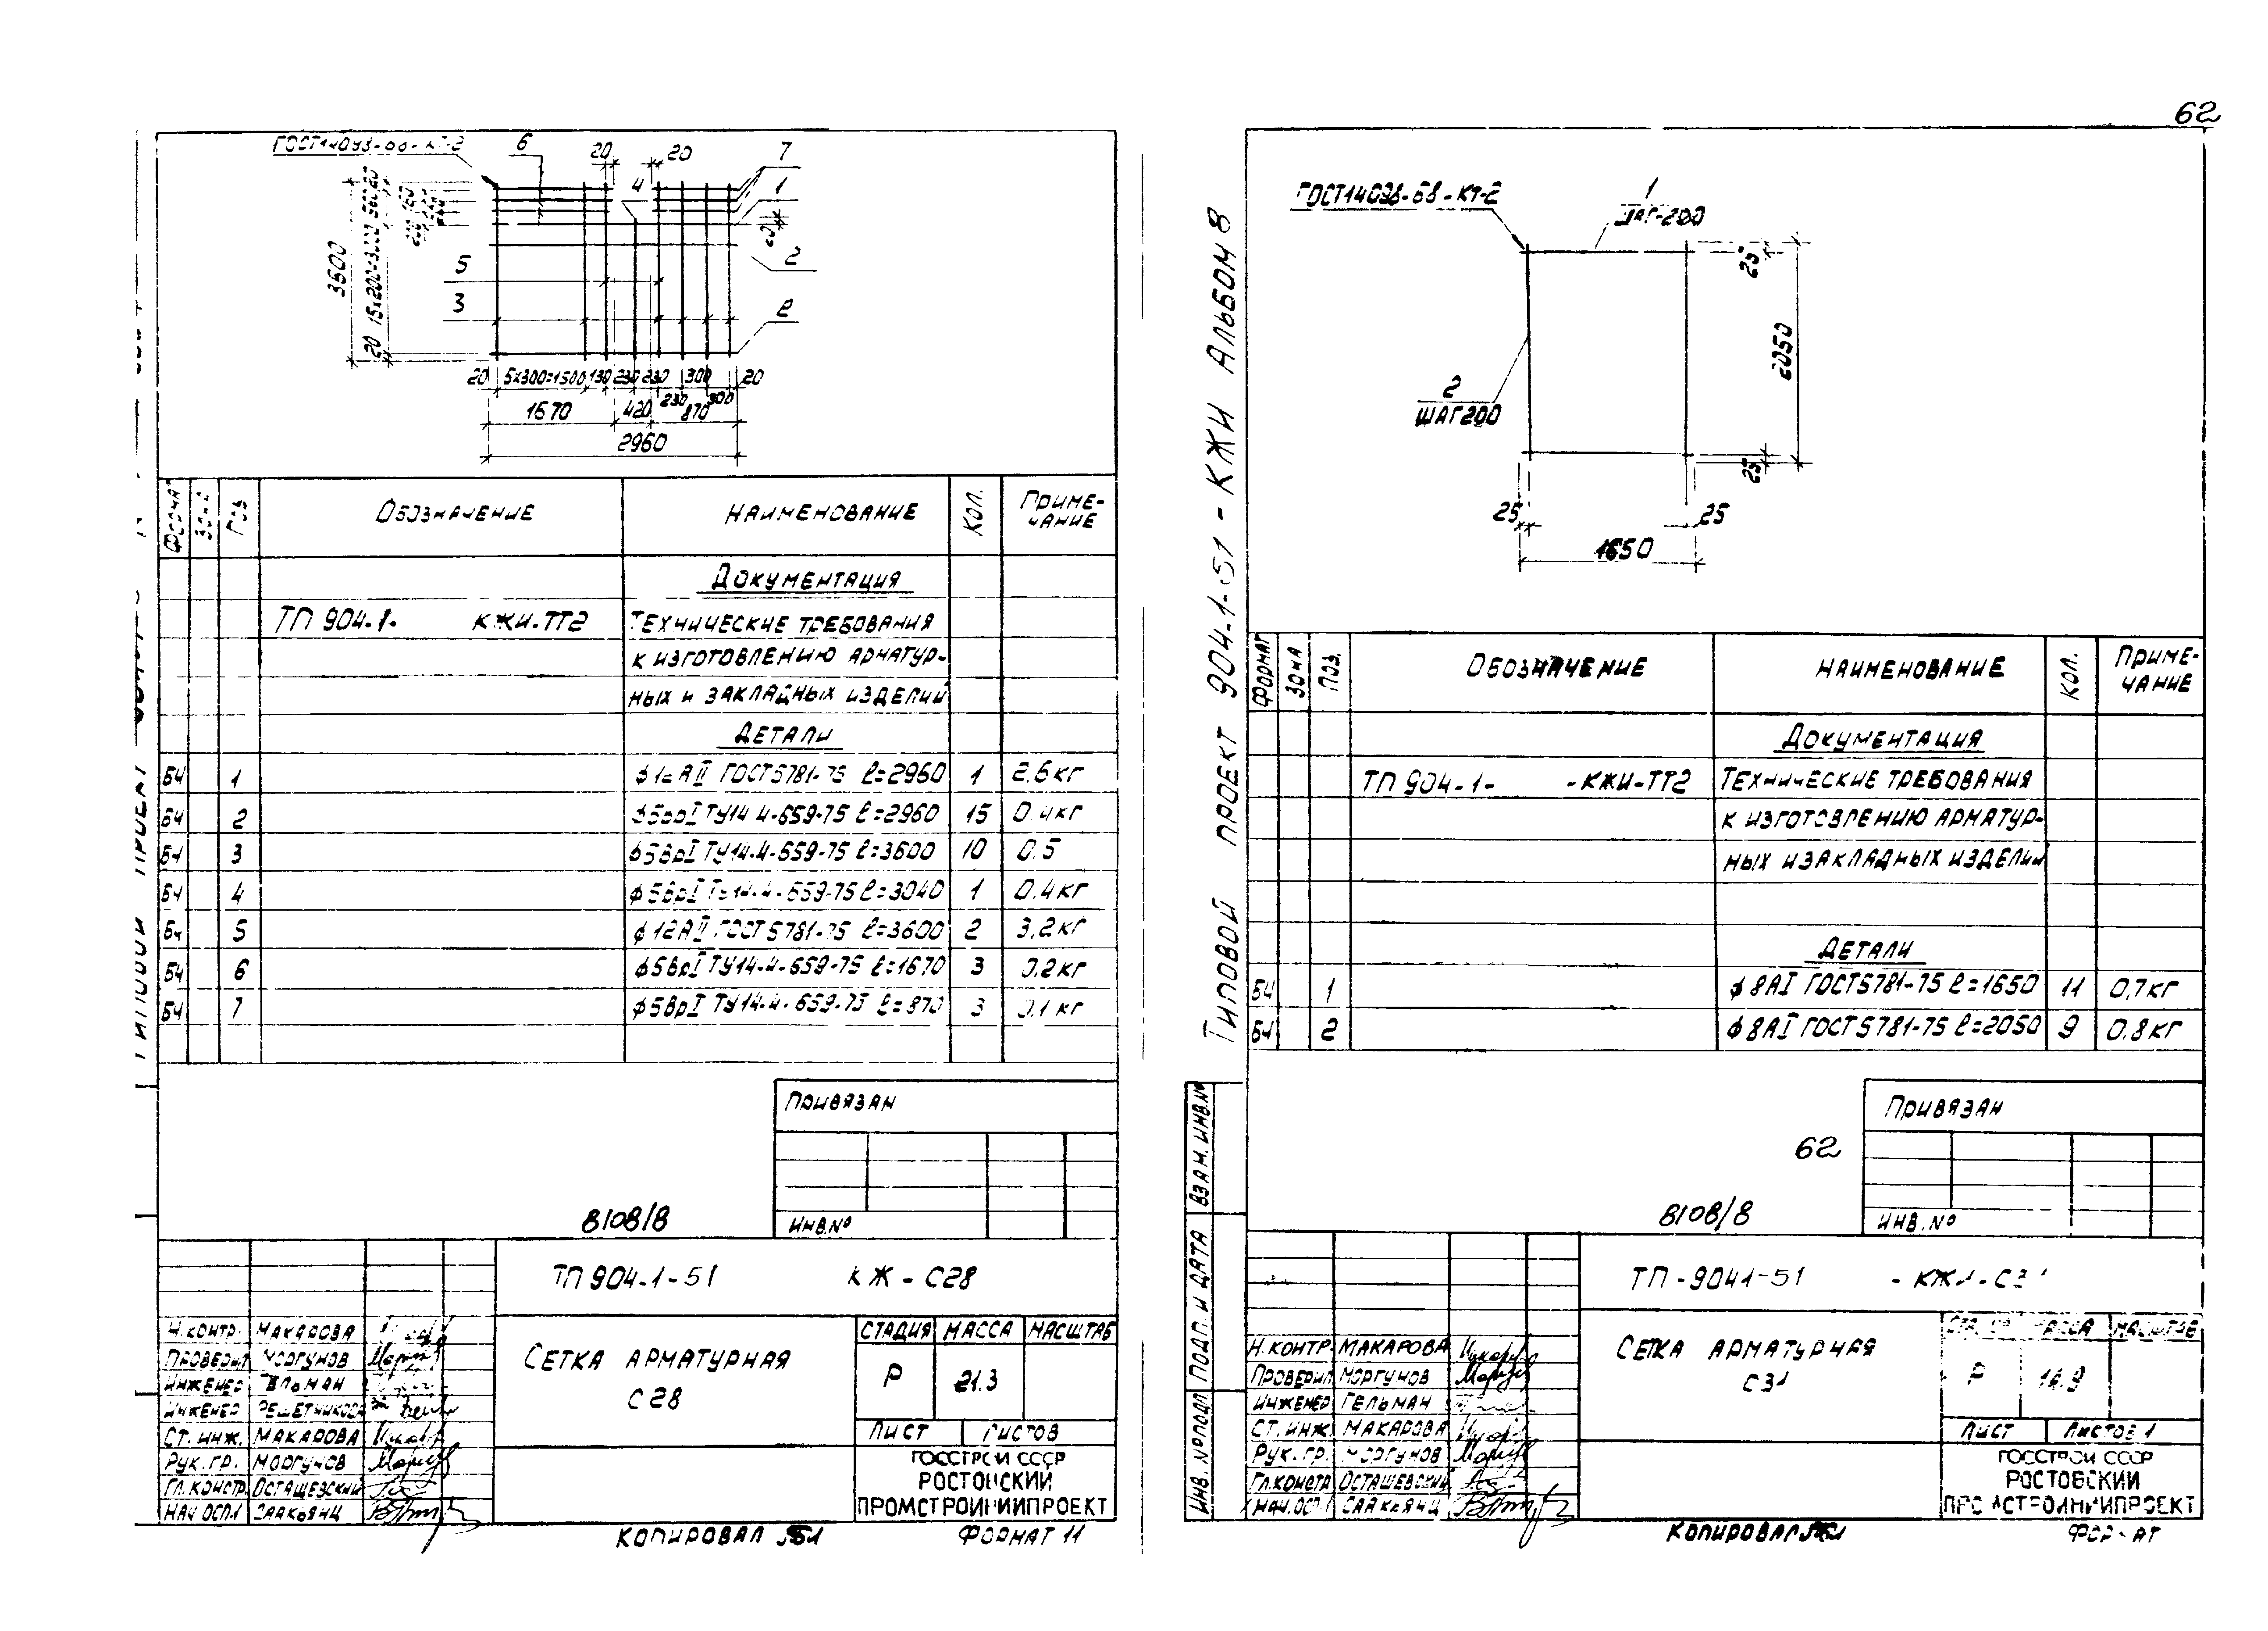 62
6
20
20
7
4
1
3600
20
2
5
3
2
20
5х300=1500
130
230
230
300
20
230
300
1670
420
870
2960
Поз
Обозначение
Наименование
Кол.
Приме-
чание
Документация
ТП 904-1- КЖИ-ТТ2
Технические требования
к изготовлению арматур-
ных и закладных изделий
Детали
БЧ 1 ф12АII ГОСТ5781-75 ℓ=2960 1 2.6кг
БЧ 2 ф5ВрI ТУ14-4-659-75 ℓ=2960 15 0.4кг
БЧ 3 ф5ВрI ТУ14-4-659-75 ℓ=3600 10 0.5
БЧ 4 ф5ВрI ТУ14-4-659-75 ℓ=3040 1 0.4кг
БЧ 5 ф12АII ГОСТ5781-75 ℓ=3600 2 3.2кг
БЧ 6 ф5ВрI ТУ14-4-659-75 ℓ=1670 3 0.2кг
БЧ 7 ф5ВрI ТУ14-4-659-75 ℓ=870 3 0.1кг
Привязан
Инв.№
8108/8
ТП 904-1-51 КЖ-С28
Н.контр. Макарова
Проверил Моргунов
Инженер Гельман
Инженер Решетникова
Ст. инж. Макарова
Рук. гр. Моргунов
Гл.констр. Осташевский
Нач.осп.1 Саакьянц
Сетка арматурная
С28
Стадия Масса Масштаб
Р 21.3
Лист Листов
ГОССТРОЙ СССР
РОСТОВСКИЙ
ПРОМСТРОЙНИИПРОЕКТ
Копировал
Формат 11
Типовой проект 904-1-51-КЖИ Альбом 8
ГОСТ14098-68-КТ-2
1
шаг-200
25
2050
2
шаг200
25
25
25
1650
Формат
Зона
Поз.
Обозначение
Наименование
Кол.
Приме-
чание
Документация
ТП 904-1- -КЖИ-ТТ2
Технические требования
к изготовлению арматур-
ных и закладных изделий
Детали
БЧ 1 ф8АI ГОСТ5781-75 ℓ=1650 11 0,7кг
БЧ 2 ф8АI ГОСТ5781-75 ℓ=2050 9 0.8кг
Привязан
62
Инв.№
8108/8
Взам.инв.№
Подп. и дата
Инв.№подл
ТП-904 1-51
Н.контр. Макарова
Проверил Моргунов
Инженер Гельман
Ст. инж. Макарова
Рук. гр. Моргунов
Гл.констр Осташевский
Нач.осп.1 Саакьянц
Сетка арматурная
С31
Масса Масштаб
Р 14.9
Лист Листов 1
ГОССТРОЙ СССР
РОСТОВСКИЙ
ПРОМСТРОЙНИИПРОЕКТ
Копировал
Формат